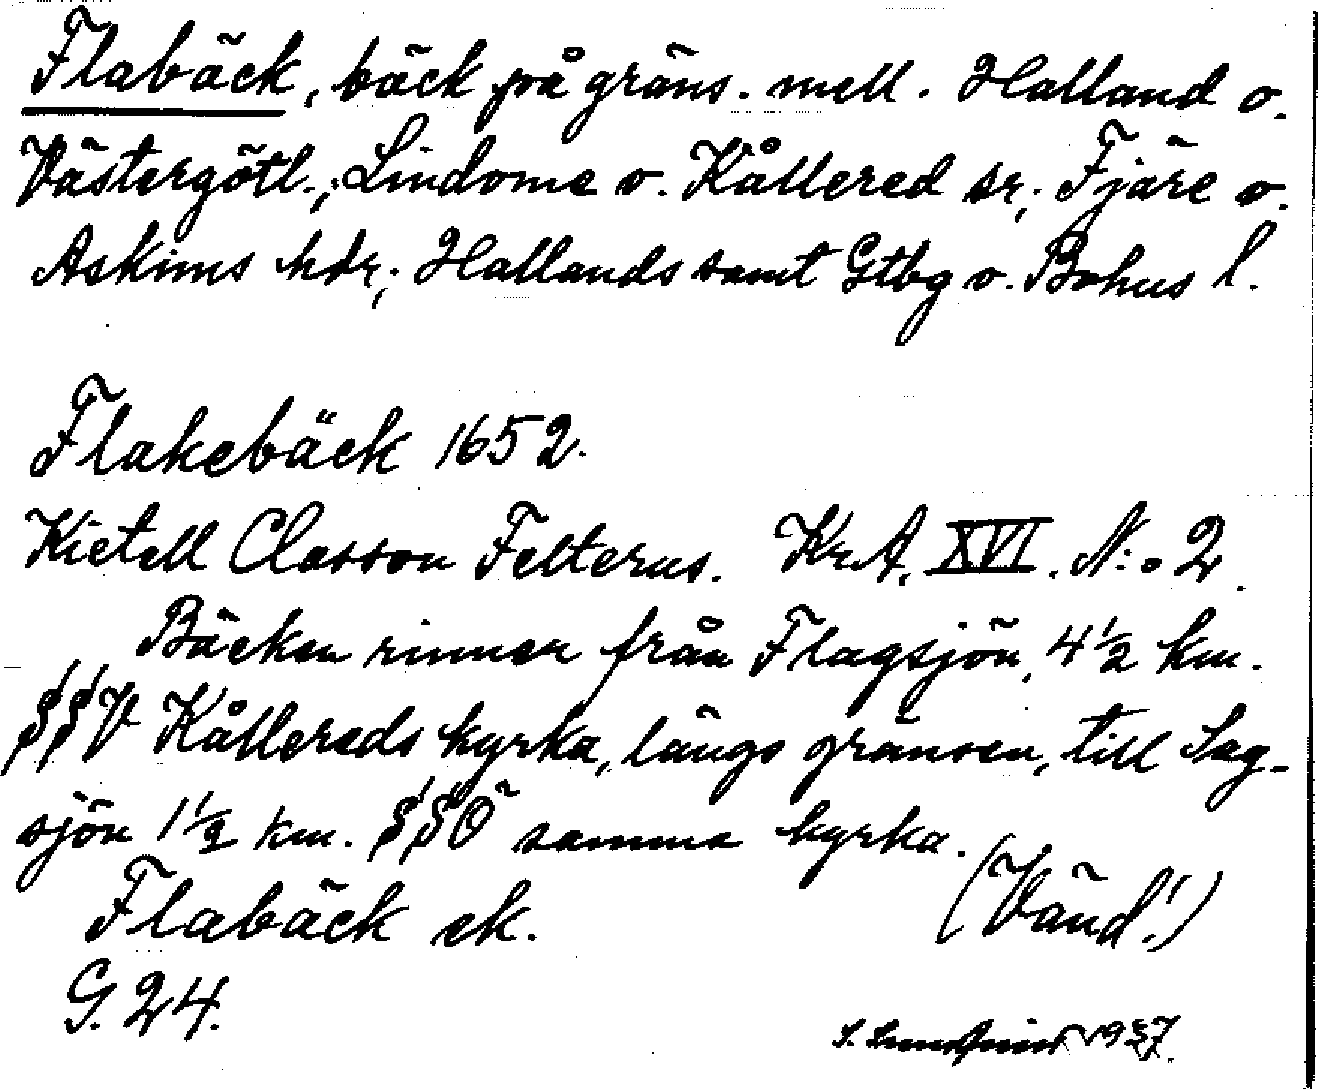 Flabäck, bäck på gräns. mell. Halland o.
Västergötl.; Lindome o. Kållered sr; Fjäre o.
Askims hdr; Hallands samt Gtbg o. Bohus l.
Flakebäck 1652.
Kietell Classon Felterus. KrA. XVI. N:o 2.
Bäcken rinner från Flagsjön, 4 1/2 km.
SSV Kållereds kyrka, längs gränsen, till Sag-
sjön 1 1/2 km. SSÖ samma kyrka.
Flabäck ek. (Vänd!)
G. 24.
S. 1937.